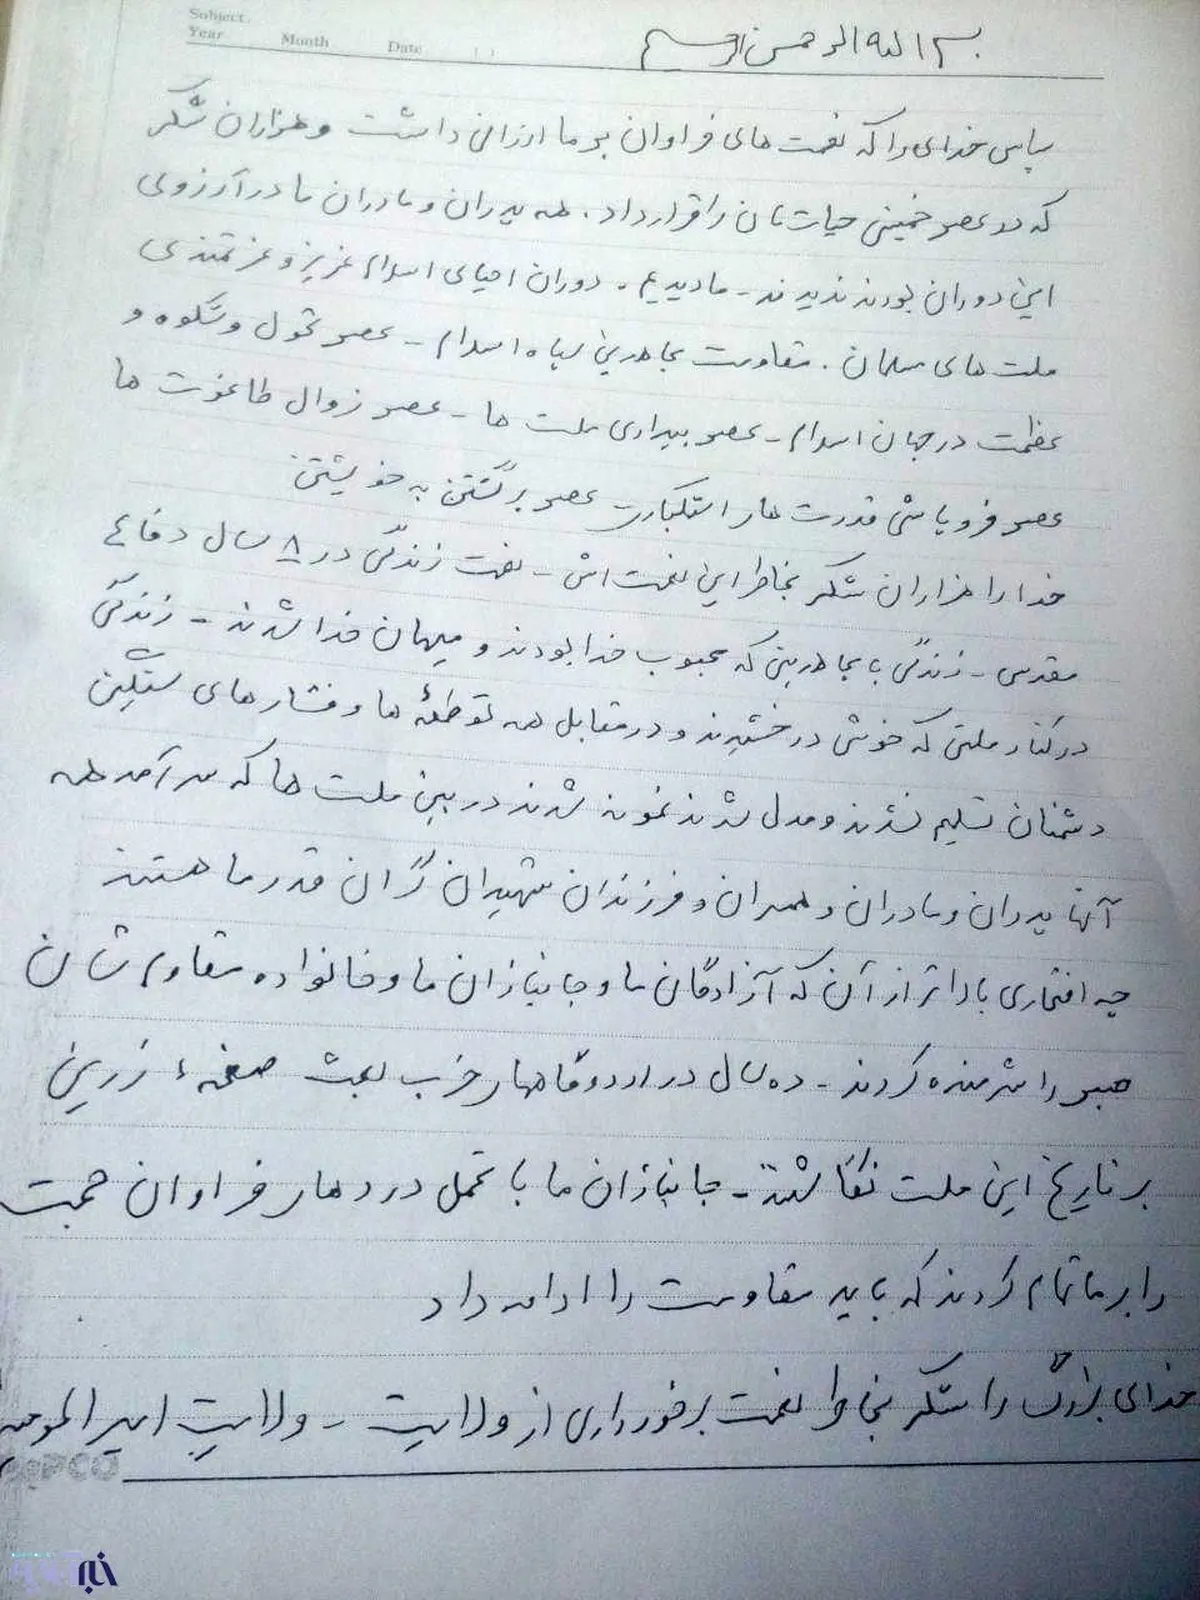 Subject
Year Month Date ( )
بسم الله الرحمن الرحیم
سپاس خدای را که نعمت های فراوان بر ما ارزانی داشت و هزاران شکر
که در عصر خمینی حیات مان را قرار داد. همه پدران و مادران ما در آرزوی
این دوران بودند ندیدند - ما دیدیم. دوران احیای اسلام عزیز و عزتمندی
ملت های مسلمان. مقاومت مجاهدین سپاه اسلام - عصر تحول و شکوه و
عظمت در جهان اسلام - عصر بیداری ملت ها - عصر زوال طاغوت ها
عصر فروپاشی قدرت های استکباری عصر برگشتن به خویشتن
خدا را هزاران شکر بخاطر این نعمت اش - نعمت زندگی در ۸ سال دفاع
مقدس - زندگی با مجاهدینی که محبوب خدا بودند و میهمان خدا شدند - زندگی
در کنار ملتی که خوش درخشیدند و در مقابل همه توطئه ها و فشارهای سنگین
دشمنان تسلیم نشدند و مدل شدند نمونه شدند در بین ملت ها که سرآمد همه
آنها پدران و مادران و همسران و فرزندان شهیدان گران قدر ما هستند
چه افتخاری بالاتر از آن که آزادگان ما و جانبازان ما و خانواده مقاوم شان
صبر را شرمنده کردند - ده سال در اردوگاههای حزب بعث صفحهء زرین
بر تاریخ این ملت نگاشتند - جانبازان ما با تحمل دردهای فراوان حجت
را بر ما تمام کردند که باید مقاومت را ادامه داد
خدای بزرگ را شکر بخاطر نعمت برخورداری از ولایت - ولایت امیرالمومنین
PAPCO
خبر